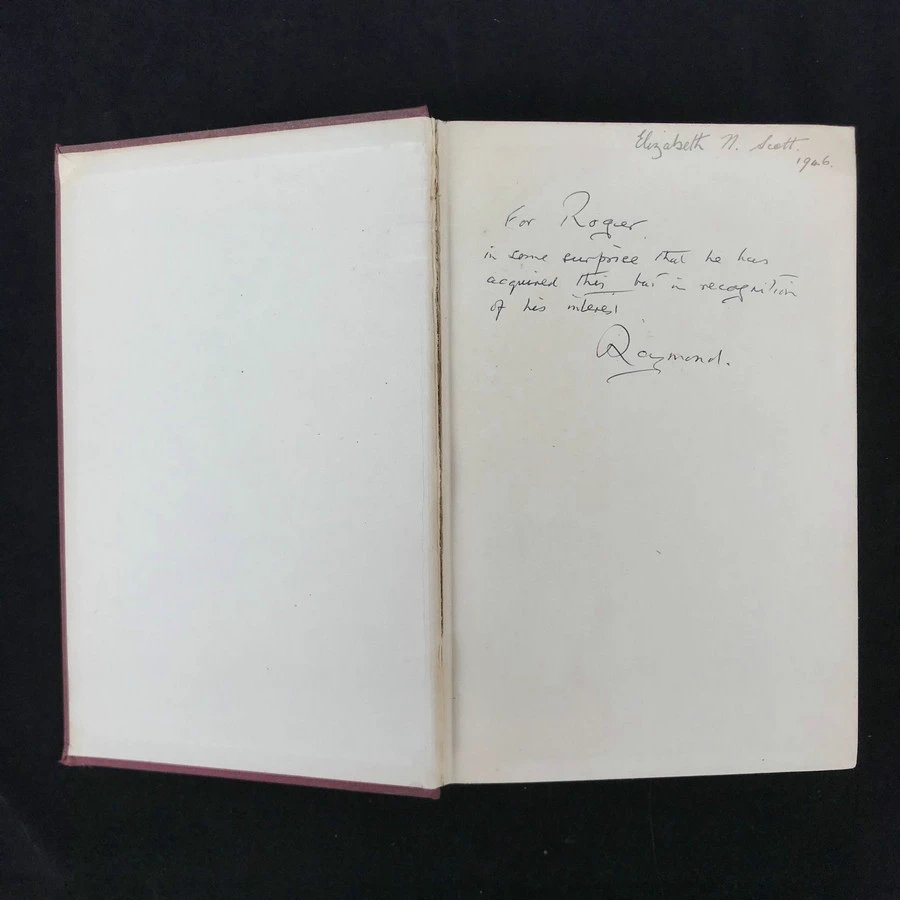 Elizabeth N. Scott.
1946.
For Roger
in some surprise that he has
acquired this but in recognition
of his interest
Raymond.